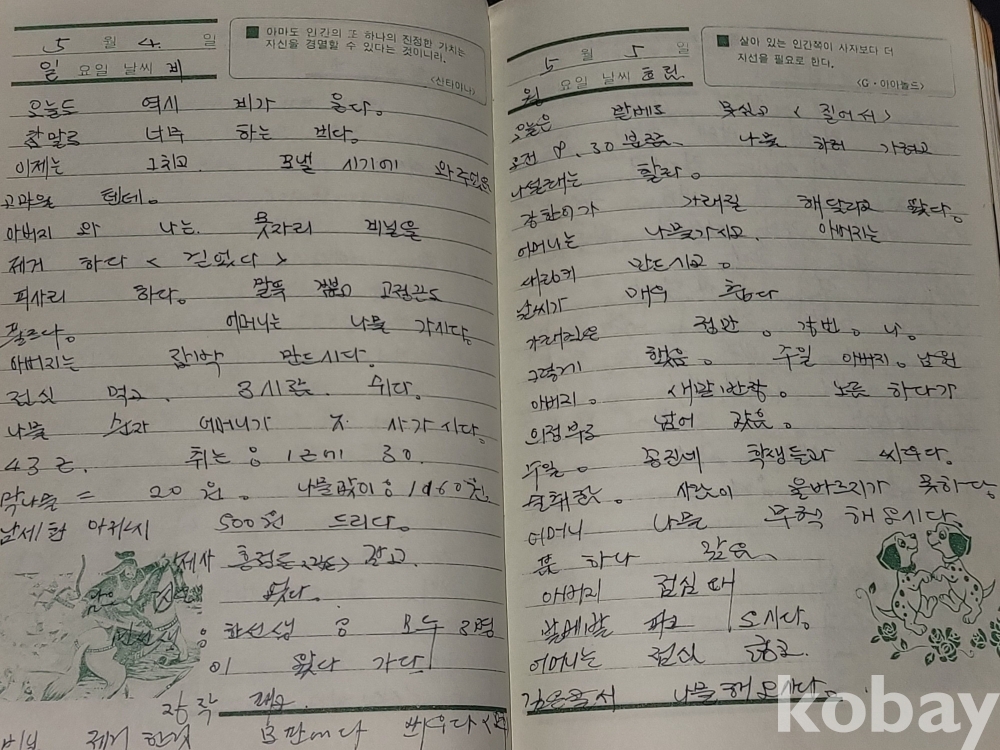 5 월 4. 일
일 요일 날씨 비
아마도 인간의 또 하나의 진정한 가치는
자신을 경멸할 수 있다는 것이니라.
<산타야나>
오늘도 역시 비가 온다.
참말로 너무 하는 비다.
이제는 그치고. 포낼 시기에 와주었으면
고마울 텐데.
아버지 와 나는. 못자리 비닐을
제거 하다 < 길었다 >
피사리 하다. 말뚝 뽑고 고정끈도
끌르다. 어머니는 나물 가시다.
아버지는 만드시다.
점심 먹고. 3시까는. 쉬다.
나물 어머니가 사가 시다.
43근. 취는 응 1근에 30.
막나물 = 20원. 나물값이 응 1060원.
아저씨 500원 드리다.
제사 흥정돈 갚고.
왔다.
한선생 응 모두 3명
이 왔다 가다.
장작 패고.
비닐 제거 한것 3판이다
5 월 5 일
월 요일 날씨 흐림
살아 있는 인간쪽이 사자보다 더
지선을 필요로 한다.
<G·아아놀드>
오늘은 밭베도 못심고 < 질어서 >
오전 9.30분쯤. 나물 하러 가려고
나설래는 찰라.
강한이가 가래질 해달라고 왔다.
어머니는 나물가시고. 아버지는
만드시고.
날씨가 매우 춥다
가래질은 정만. 강번. 나.
그렇게 했음. 주일 아버지. 남원
아버지. 새말 반장. 노름 하다가
의정부로 넘어 갔음.
주일. 종진네 학생들과 싸우다.
술취함. 사람이 올바르지가 못하다.
어머니 나물 무척 해 오시다.
품 하나 갚음.
아버지 점심 때
파고 오시다.
어머니는 점심
깊은골서 나물해 오시다.
kobay